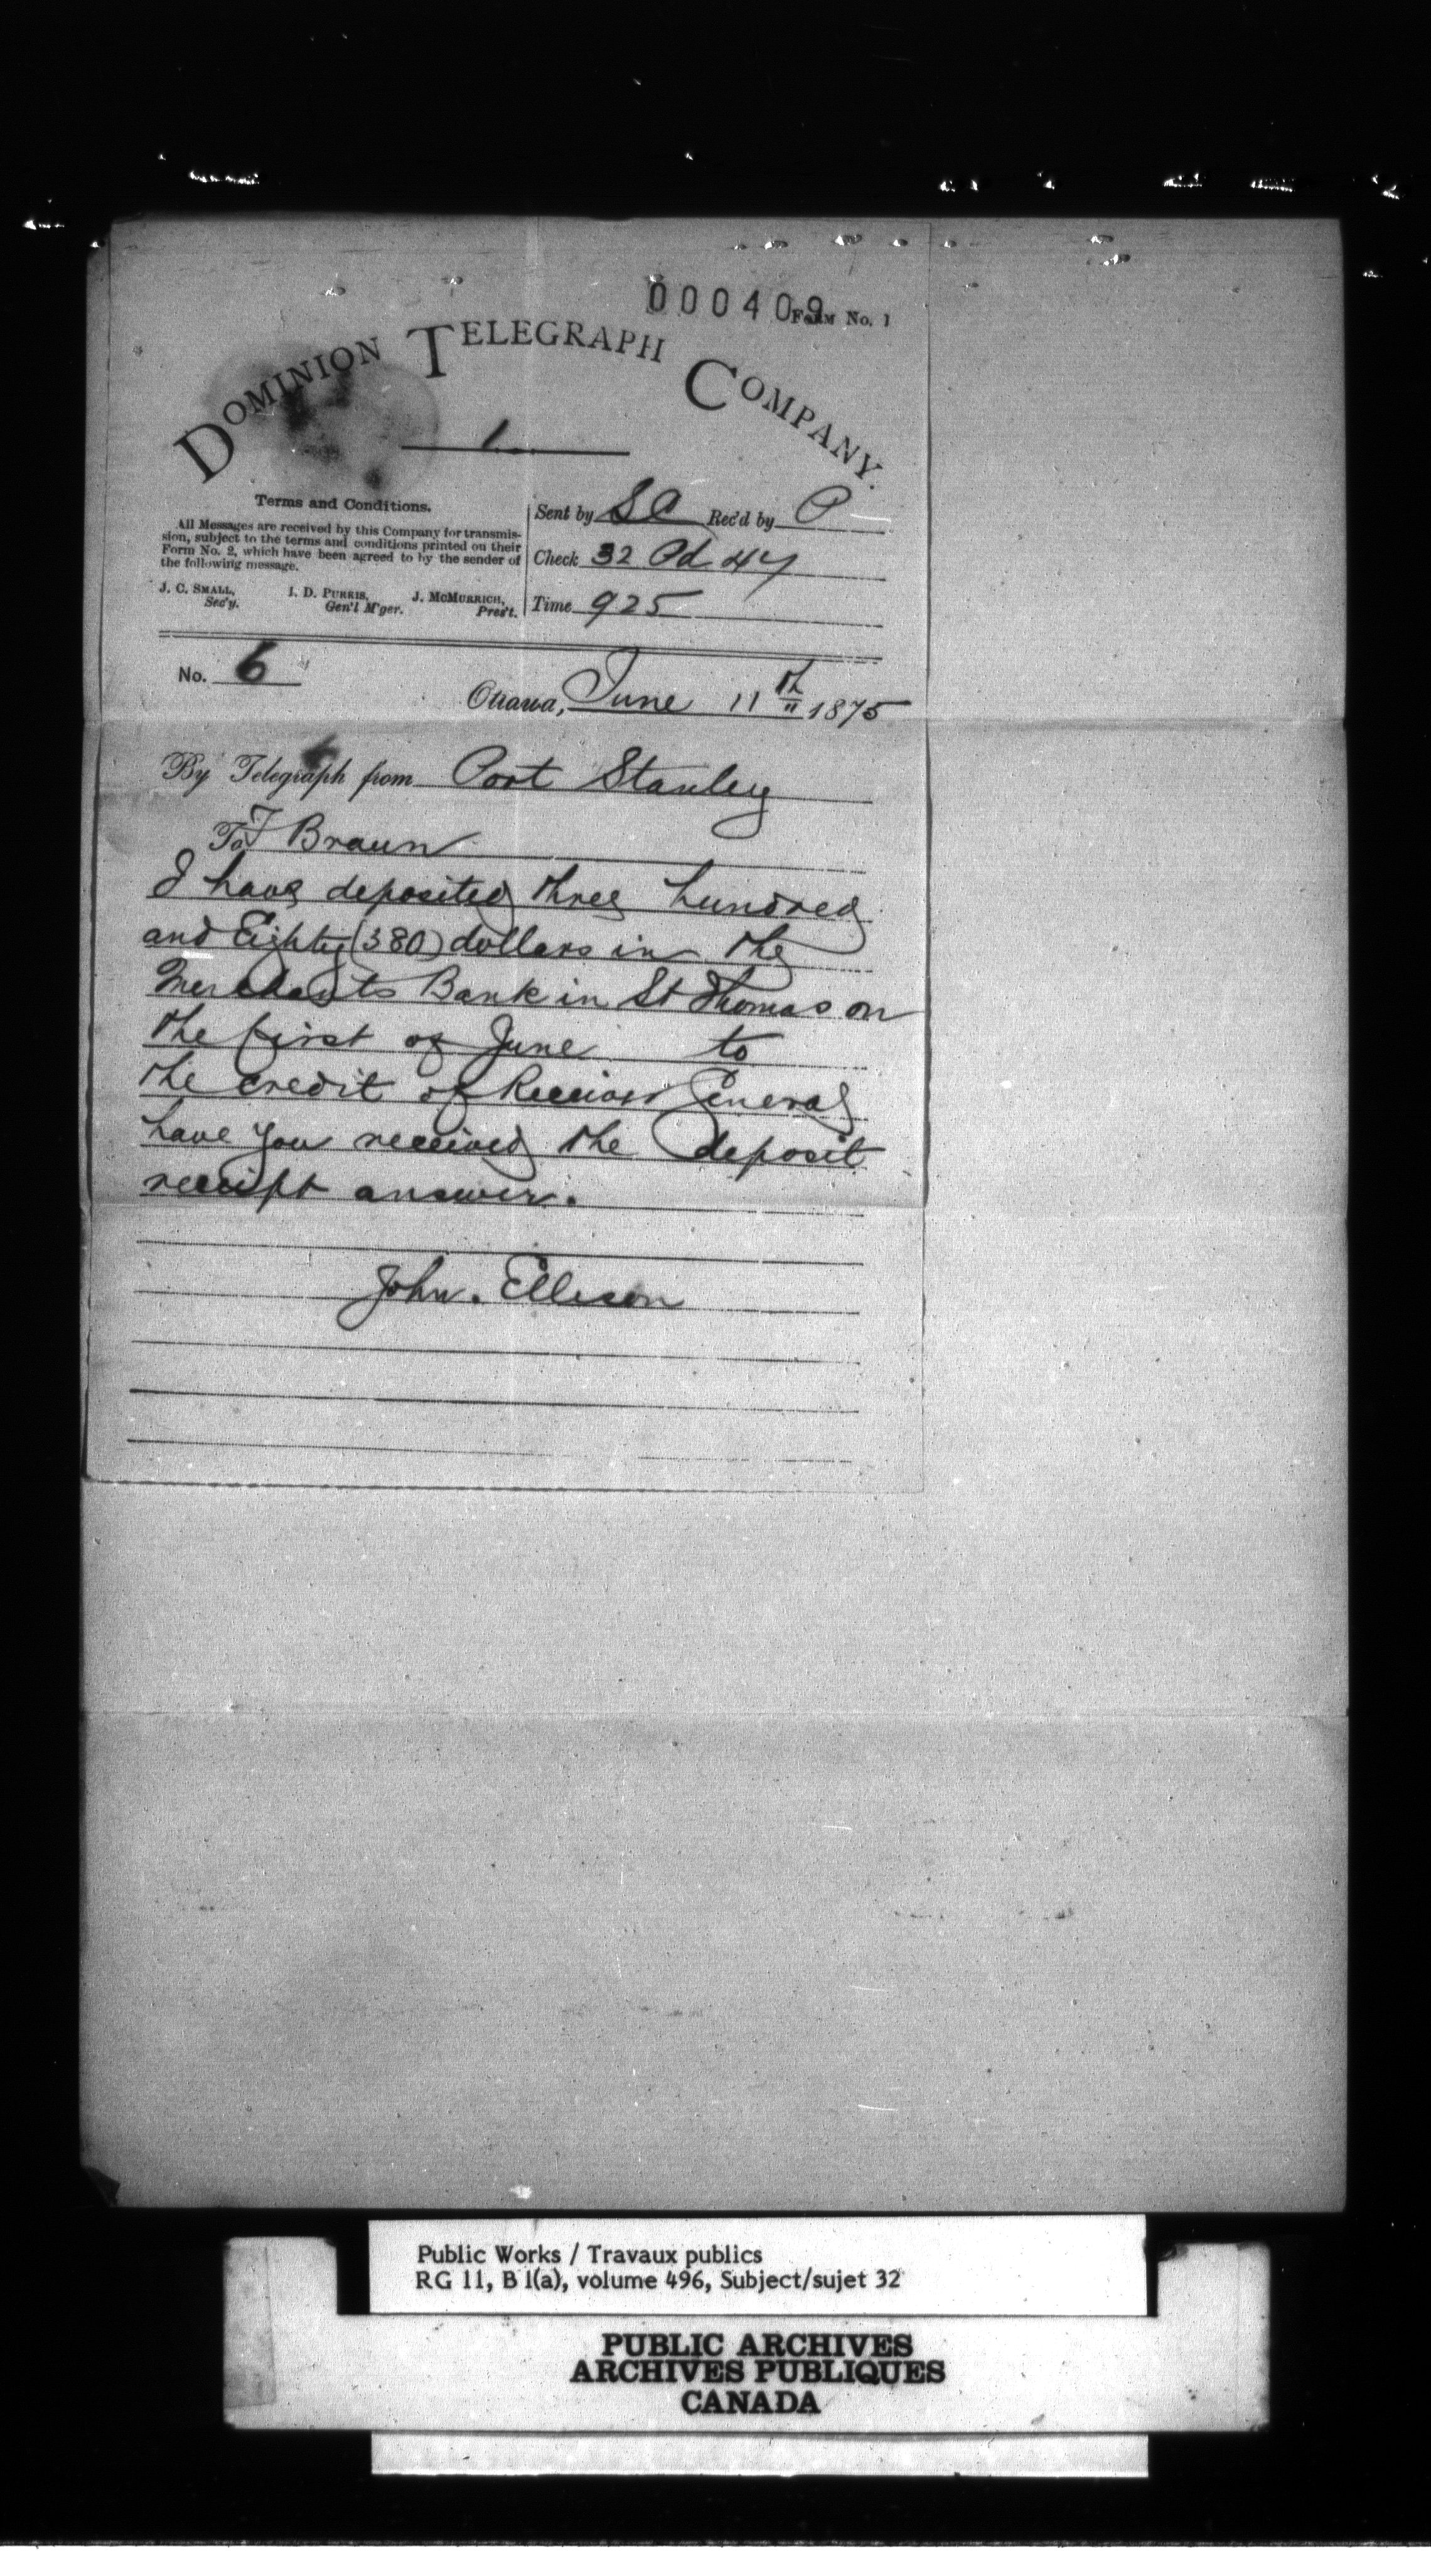 000409
Form No. 1
DOMINION TELEGRAPH COMPANY.
1
Terms and Conditions.
All Messages are received by this Company for transmis-
sion, subject to the terms and conditions printed on their
Form No. 2, which have been agreed to by the sender of
the following message.
J. C. SMALL, I. D. PURKIS, J. McMURRICH,
Sec'y. Gen'l M'ger. Pres't.
Sent by SC Rec'd by P
Check 32 Pd 44
Time 925
No. 6
Ottawa, June 11th 1875
By Telegraph from Port Stanley
To F Braun
I have deposited three hundred
and Eighty (380) dollars in the
Merchants Bank in St Thomas on
the first of June to
the credit of Receiver General
have you received the deposit
receipt answer.
John. Ellison
Public Works / Travaux publics
RG 11, B 1(a), volume 496, Subject/sujet 32
PUBLIC ARCHIVES
ARCHIVES PUBLIQUES
CANADA